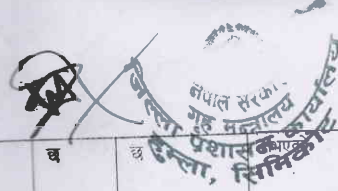 नेपाल सरकार
गृह मन्त्रालय
जिल्ला प्रशासन कार्यालय
हुम्ला, सिमिकोट
छ